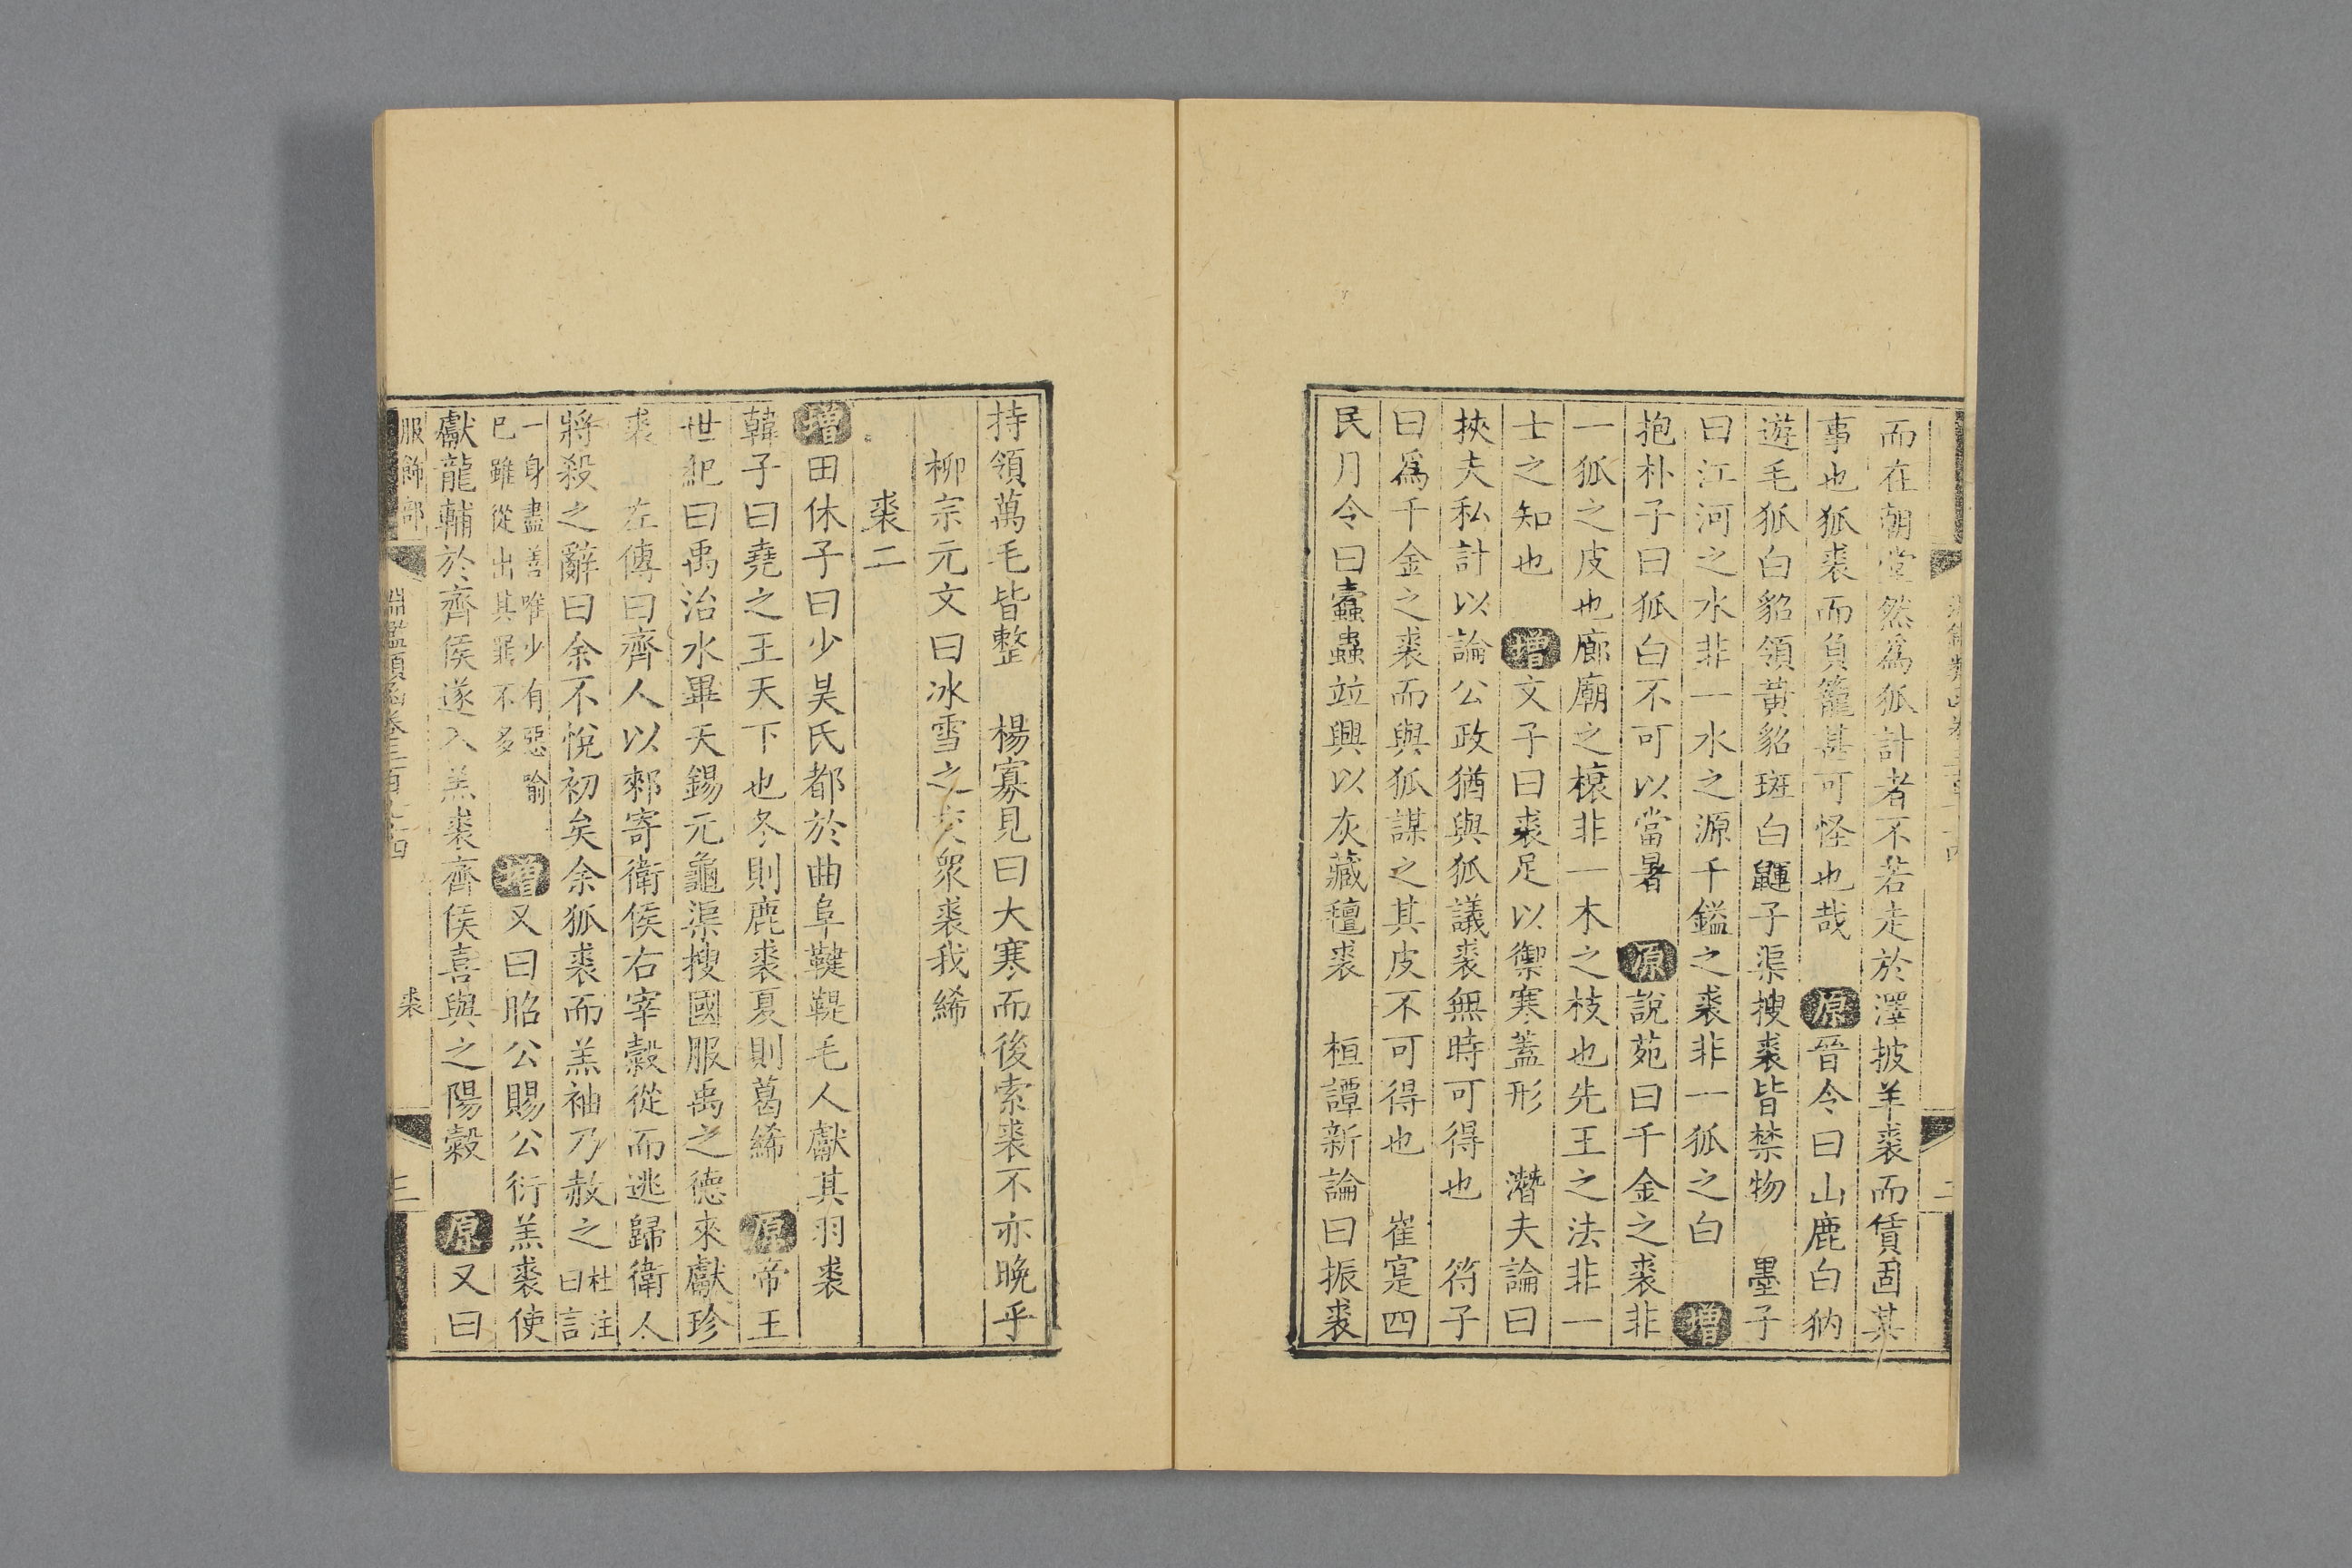 而在朝堂然爲狐計者不若走於澤披羊裘而賃固其
事也狐裘而負籠甚可怪也哉　原晉令曰山鹿白豽
遊毛狐白貂領黃貂斑白鼲子渠搜裘皆禁物　墨子
曰江河之水非一水之源千鎰之裘非一狐之白　增
抱朴子曰狐白不可以當暑　原說苑曰千金之裘非
一狐之皮也廊廟之榱非一木之枝也先王之法非一
士之知也　增文子曰裘足以禦寒蓋形　潛夫論曰
挾夫私計以論公政猶與狐議裘無時可得也　符子
曰爲千金之裘而與狐謀之其皮不可得也　崔寔四
民月令曰蠹蟲竝興以灰藏氊裘　桓譚新論曰振裘
持領萬毛皆整　楊寡見曰大寒而後索裘不亦晚乎
柳宗元文曰冰雪之交衆裘我絺
裘二
增田休子曰少昊氏都於曲阜鞬鞮毛人獻其羽裘
韓子曰堯之王天下也冬則鹿裘夏則葛絺　原帝王
世紀曰禹治水畢天錫元龜渠搜國服禹之德來獻珍
裘　左傳曰齊人以郲寄衛侯右宰穀從而逃歸衛人
將殺之辭曰余不悅初矣余狐裘而羔袖乃赦之杜注曰言
一身盡善唯少有惡喻
已雖從出其罪不多
增又曰昭公賜公衍羔裘使
獻龍輔於齊侯遂入羔裘齊侯喜與之陽穀　原又曰
服飾部　淵鑑類函卷三百七十四　裘　三